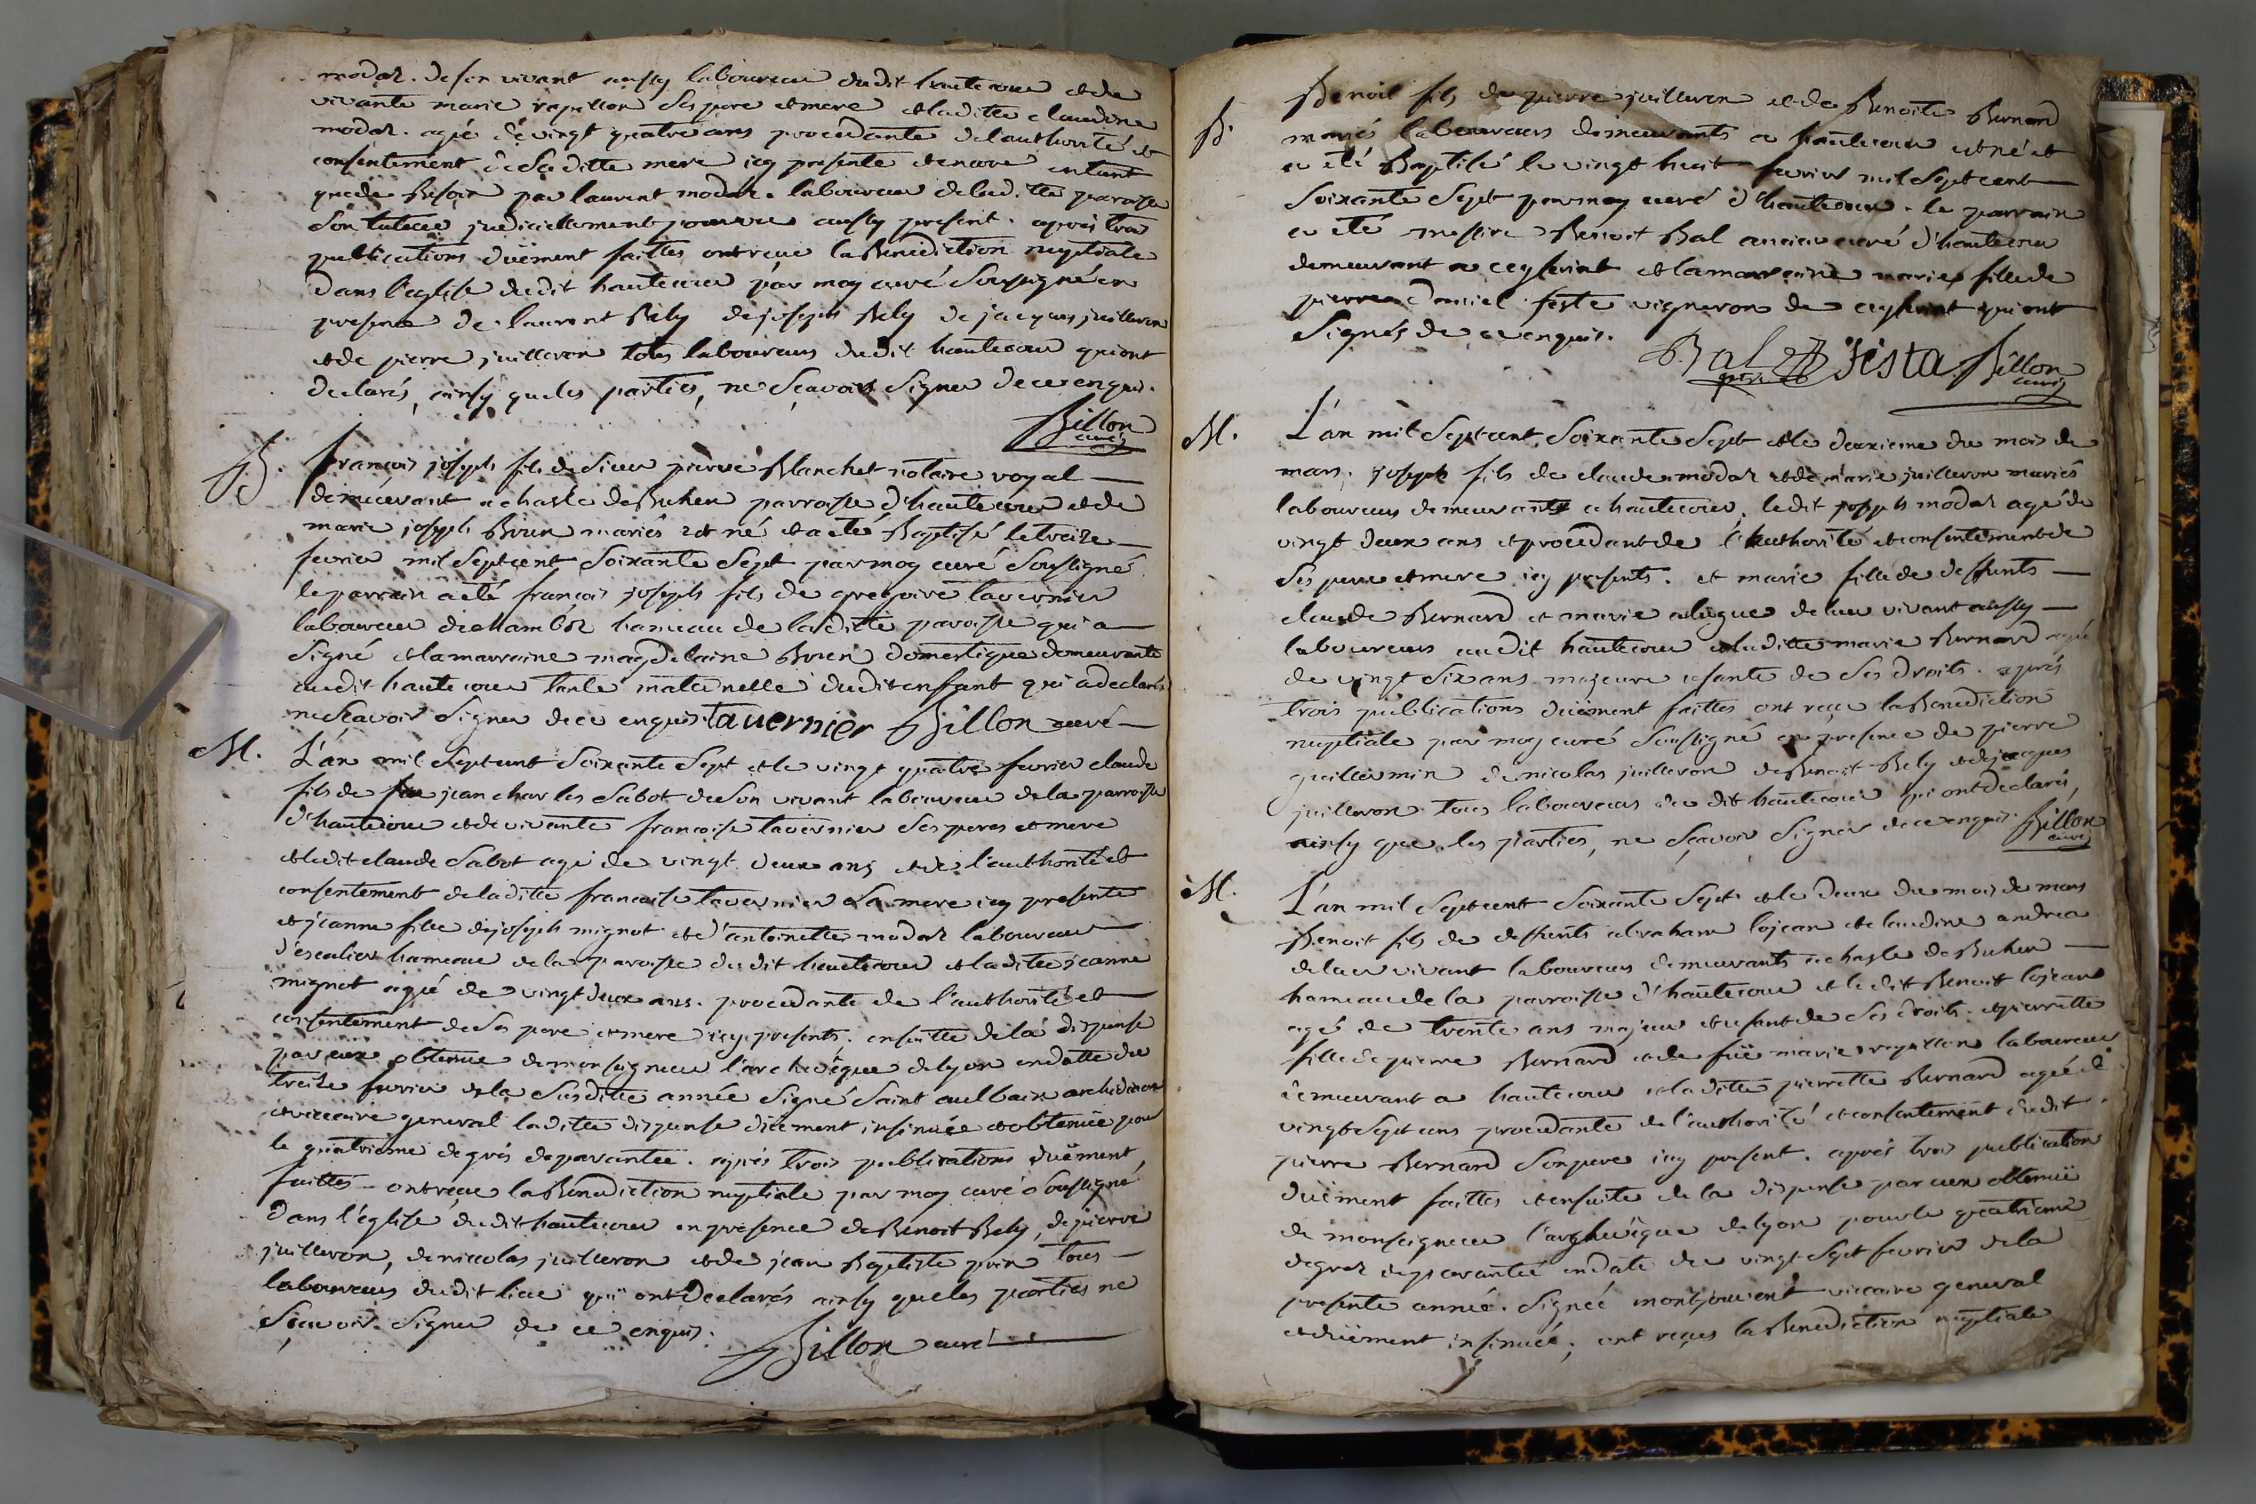 modas. de son vivant aussy laboureur dudit hautecour et de
vivante marie rapillon ses pere et mere et ladite claudine
modas. agée de vingt quatre ans procedante de l'authorité et
consentement de saditte mere icy presente et encore entant
que de besoin par laurent modas. laboureur de lad. tte paroisse
son tuteur judiciellement pourvu aussy present. après trois
publications düement faittes ont reçue la Benediction nuptiale
dans l'eglise dudit hautecour par moy curé soussigné en
presence de laurent Bely de joseph Bely de jacques juilleron
et de pierre juilleron tous laboureurs dudit hautecour qui ont
declarés, ainsy que les parties, ne sçavoir signer de ce enquis.
Billon
curé
B. François joseph fils de sieur pierre Blanchet notaire royal
demeurant a chasle de Buhen parroisse d'hautecour et de
marie joseph Brun mariés est né et a été Baptisé le treize
fevrier mil sept cent soixante sept par moy curé soussigné
le parrain a été françois joseph fils de gregoire tavernier
laboureur de chambos hameau de laditte paroisse qui a
signé et la marraine magdelaine Brun domestique demeurante
audit hautecour tante maternelle dudit enfant qui a declaré
ne sçavoir signer de ce enquis. tavernier Billon curé
M. L'an mil sept cent soixante sept et le vingt quatre fevrier claude
fils de feu jean charles Sabot de son vivant laboureur de la parroisse
d'hautecour et de vivante francoise tavernier ses peres et mere
et ledit claude Sabot agé de vingt deux ans et de l'authorité et
consentement de laditte francoise tavernier sa mere icy presente
et jeanne fille de joseph mignot et d'antoinette modas laboureur
d'escalier hameau de la paroisse dudit hautecour et laditte jeanne
mignot agée de vingt deux ans. procedante de l'authorité et
consentement de ses pere et mere icy presents. ensuitte de la dispense
par eux obtenue de monseigneur l'archevêque de lyon en datte du
treize fevrier de la susditte année signé Saint aulbain archidiacre
et viccaire general laditte dispense düement insinuée et obtenüe pour
le quatrieme degrés de parantée. après trois publications düement,
faittes ont reçue la Benediction nuptiale par moy curé soussigné
dans l'église dudit hautecour en presence de Benoit Bely, de pierre
juilleron, de nicolas juilleron et de jean Baptiste poin tous
laboureurs dudit lieu qui ont declarés ainsy que les parties ne
sçavoir signer de ce enquis. Billon curé
B. Benoit fils de pierre juilleron et de Benoite Bernard
mariés laboureurs demeurants a hautecour est né et
a été Baptisé le vingt huit fevrier mil sept cent
soixante sept par moy curé d'hautecour. le parrain
a été messire Benoit Bal ancien curé d'hautecour
demeurant a ceyseriat et la marraine marie fille de
pierre daniel feste vigneron de ceyseriat qui ont
signés de ce enquis.
Bal ptre festa Billon
curé
M. L'an mil sept cent soixante sept et le deuxieme du mois de
mars, joseph fils de claude modas et de marie juilleron mariés
laboureurs demeurants a hautecour, ledit joseph modas agé de
vingt deux ans et procedant de l'authorité et consentement de
ses pere et mere icy presents. et marie fille de deffunts
claude Bernard et marie alugue de leur vivant aussy
laboureurs audit hautecour et laditte marie Bernard agée
de vingt six ans majeure usante de ses droits. après
trois publications düement faittes ont reçu la Benediction
nuptiale par moy curé soussigné en presence de pierre
guillermin de nicolas juilleron de Benoit Bely et de jacques
juilleron tous laboureurs du dit hautecour qui ont declarés,
ainsy que les parties, ne sçavoir signer de ce enquis. Billon
curé
M. L'an mil sept cent soixante sept et le deux du mois de mars
Benoit fils de deffunts abraham lojean et claudine andrea
de leur vivant laboureurs demeurants a chasle de Buhen
hameau de la parroisse d'hautecour et ledit Benoit lojean
agé de trente ans majeur et usant de ses droits. et pierrette
fille de pierre Bernard et de füe marie rapillon laboureur
demeurant a hautecour et laditte pierrette Bernard agée de
vingt sept ans procedante de l'authorité et consentement dudit
pierre Bernard son pere icy present. après trois publication
düement faittes et ensuite de la dispense par eux obtenüe
de monseigneur l'archevêque de lyon pour le quatrieme
degrez de parantée en date du vingt sept fevrier de la
presente année. signée montjouvent viccaire general
et düement insinuée, ont reçus la Benediction nuptiale